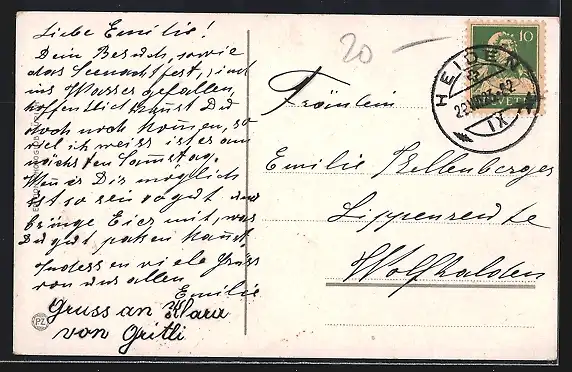 Liebe Emilie!
Dein Besuch, sowie
das Seenachtfest, sind
ins Wasser gefallen,
hoffentlich kannst Du
doch noch kommen, so
viel ich weiss ist es am
nächsten Samstag.
Wenn es Dir möglich
ist so sei so gut und
bringe Eier mit, was
Du gut packen kannst.
Indessen viele Grüsse
von uns allen
Emilie
Gruss an Klara
von Gritli
PZ
20
10
HELVETIA
HEIDEN
Fräulein
Emilie Kellenberger
Lippenreute
Wolfhalden